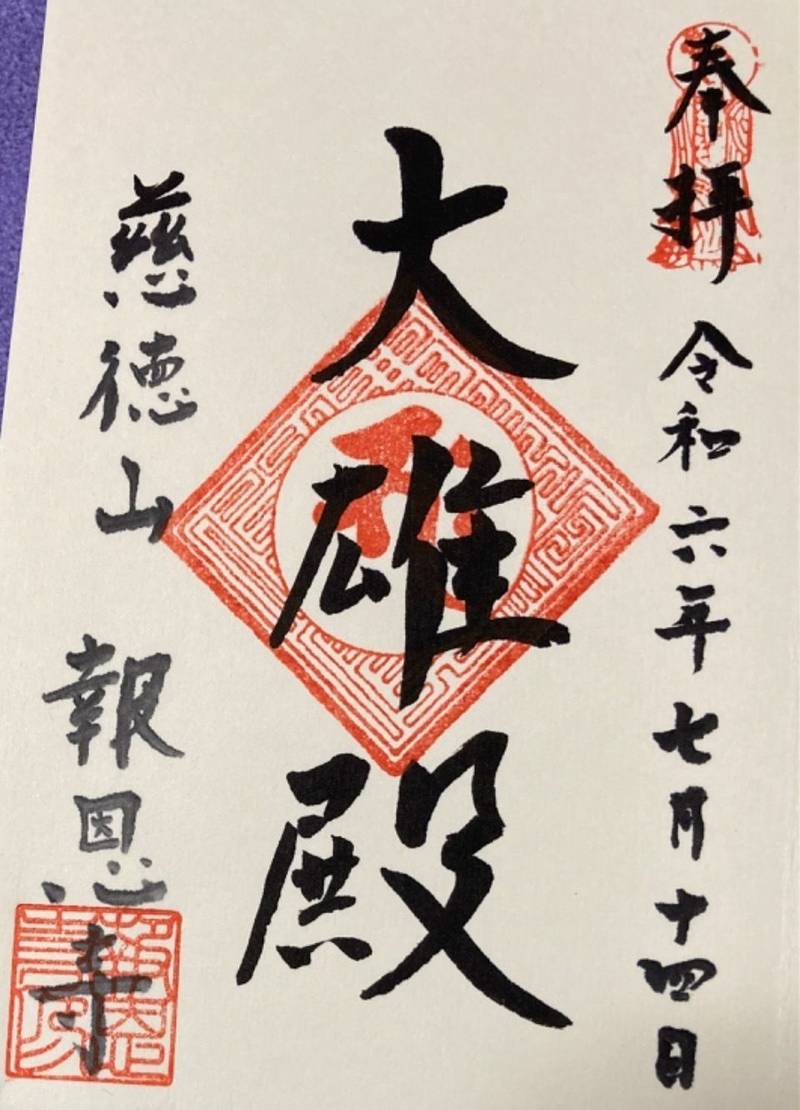 奉拝 令和六年七月十四日
大雄殿
慈徳山 報恩寺